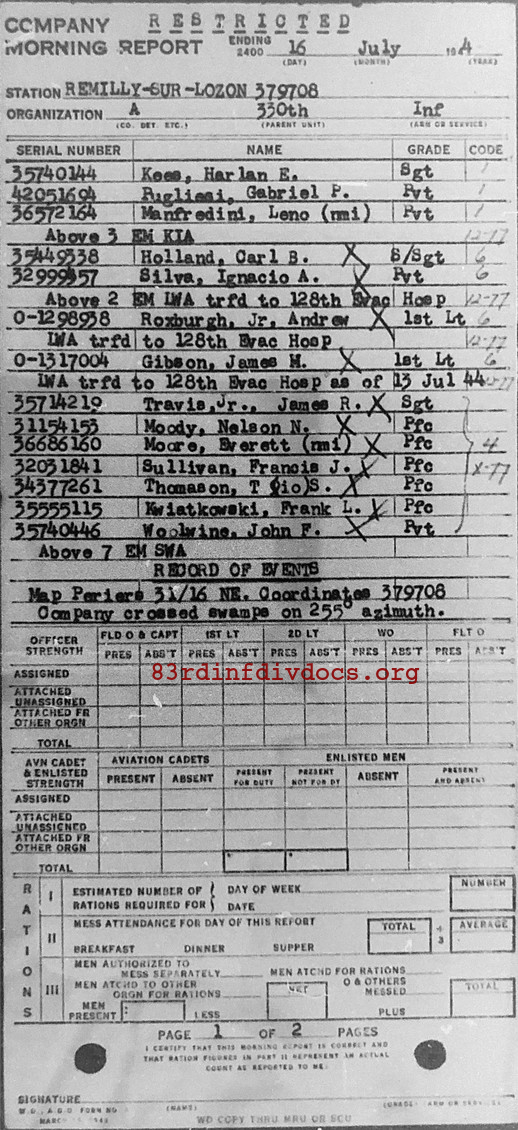 COMPANY RESTRICTED
MORNING REPORT ENDING 2400 16 July 194 4
(DAY) (MONTH) (YEAR)
STATION REMILLY-SUR-LOZON 379708
ORGANIZATION A 330th Inf
(CO. DET. ETC.) (PARENT UNIT) (ARM OR SERVICE)
SERIAL NUMBER NAME GRADE CODE
35740144 Kees, Harlan E. Sgt 1
42051694 Pugliesi, Gabriel P. Pvt 1
36572164 Manfredini, Leno (nmi) Pvt 1
Above 3 EM KIA 12-77
35449338 Holland, Carl B. X S/Sgt 6
32999457 Silva, Ignacio A. X Pvt 6
Above 2 EM LWA trfd to 128th Evac Hosp 12-77
0-1298938 Roxburgh, Jr, Andrew X 1st Lt 6
LWA trfd to 128th Evac Hosp 12-77
0-1317004 Gibson, James M. X 1st Lt 6
LWA trfd to 128th Evac Hosp as of 13 Jul 44
35714219 Travis, Jr., James R. X Sgt
31154153 Moody, Nelson N. X Pfc
36686160 Moore, Everett (nmi) X Pfc 4
32031841 Sullivan, Francis J. X Pfc
34377261 Thomason, T (io) S. X Pfc
35555115 Kwiatkowski, Frank L. X Pfc
35740446 Woolwine, John F. X Pvt
Above 7 EM SWA
RECORD OF EVENTS
Map Periers 31/16 NE. Coordinates 379708
Company crossed swamps on 255° azimuth.
OFFICER STRENGTH FLD O & CAPT 1ST LT 2D LT WO FLT O
PRES ABS'T PRES ABS'T PRES ABS'T PRES ABS'T PRES ABS'T
ASSIGNED
83rdinfdivdocs.org
ATTACHED UNASSIGNED
ATTACHED FR OTHER ORGN
TOTAL
AVN CADET & ENLISTED STRENGTH AVIATION CADETS ENLISTED MEN
PRESENT ABSENT PRESENT FOR DUTY PRESENT NOT FOR DY ABSENT PRESENT AND ABSENT
ASSIGNED
ATTACHED UNASSIGNED
ATTACHED FR OTHER ORGN
TOTAL
RATIONS
I ESTIMATED NUMBER OF RATIONS REQUIRED FOR { DAY OF WEEK DATE NUMBER
II MESS ATTENDANCE FOR DAY OF THIS REPORT TOTAL ÷ 3 AVERAGE
BREAKFAST DINNER SUPPER
III MEN AUTHORIZED TO MESS SEPARATELY MEN ATCHD FOR RATIONS
MEN ATCHD TO OTHER ORGN FOR RATIONS NET O & OTHERS MESSED TOTAL
MEN PRESENT LESS PLUS
PAGE 1 OF 2 PAGES
I CERTIFY THAT THIS MORNING REPORT IS CORRECT AND
THAT RATION FIGURES IN PART II REPRESENT AN ACTUAL
COUNT AS REPORTED TO ME:
SIGNATURE
(NAME) (GRADE) ARM OR SERVICE
W.D., A.G.O. FORM NO
WD COPY THRU MRU OR SCU